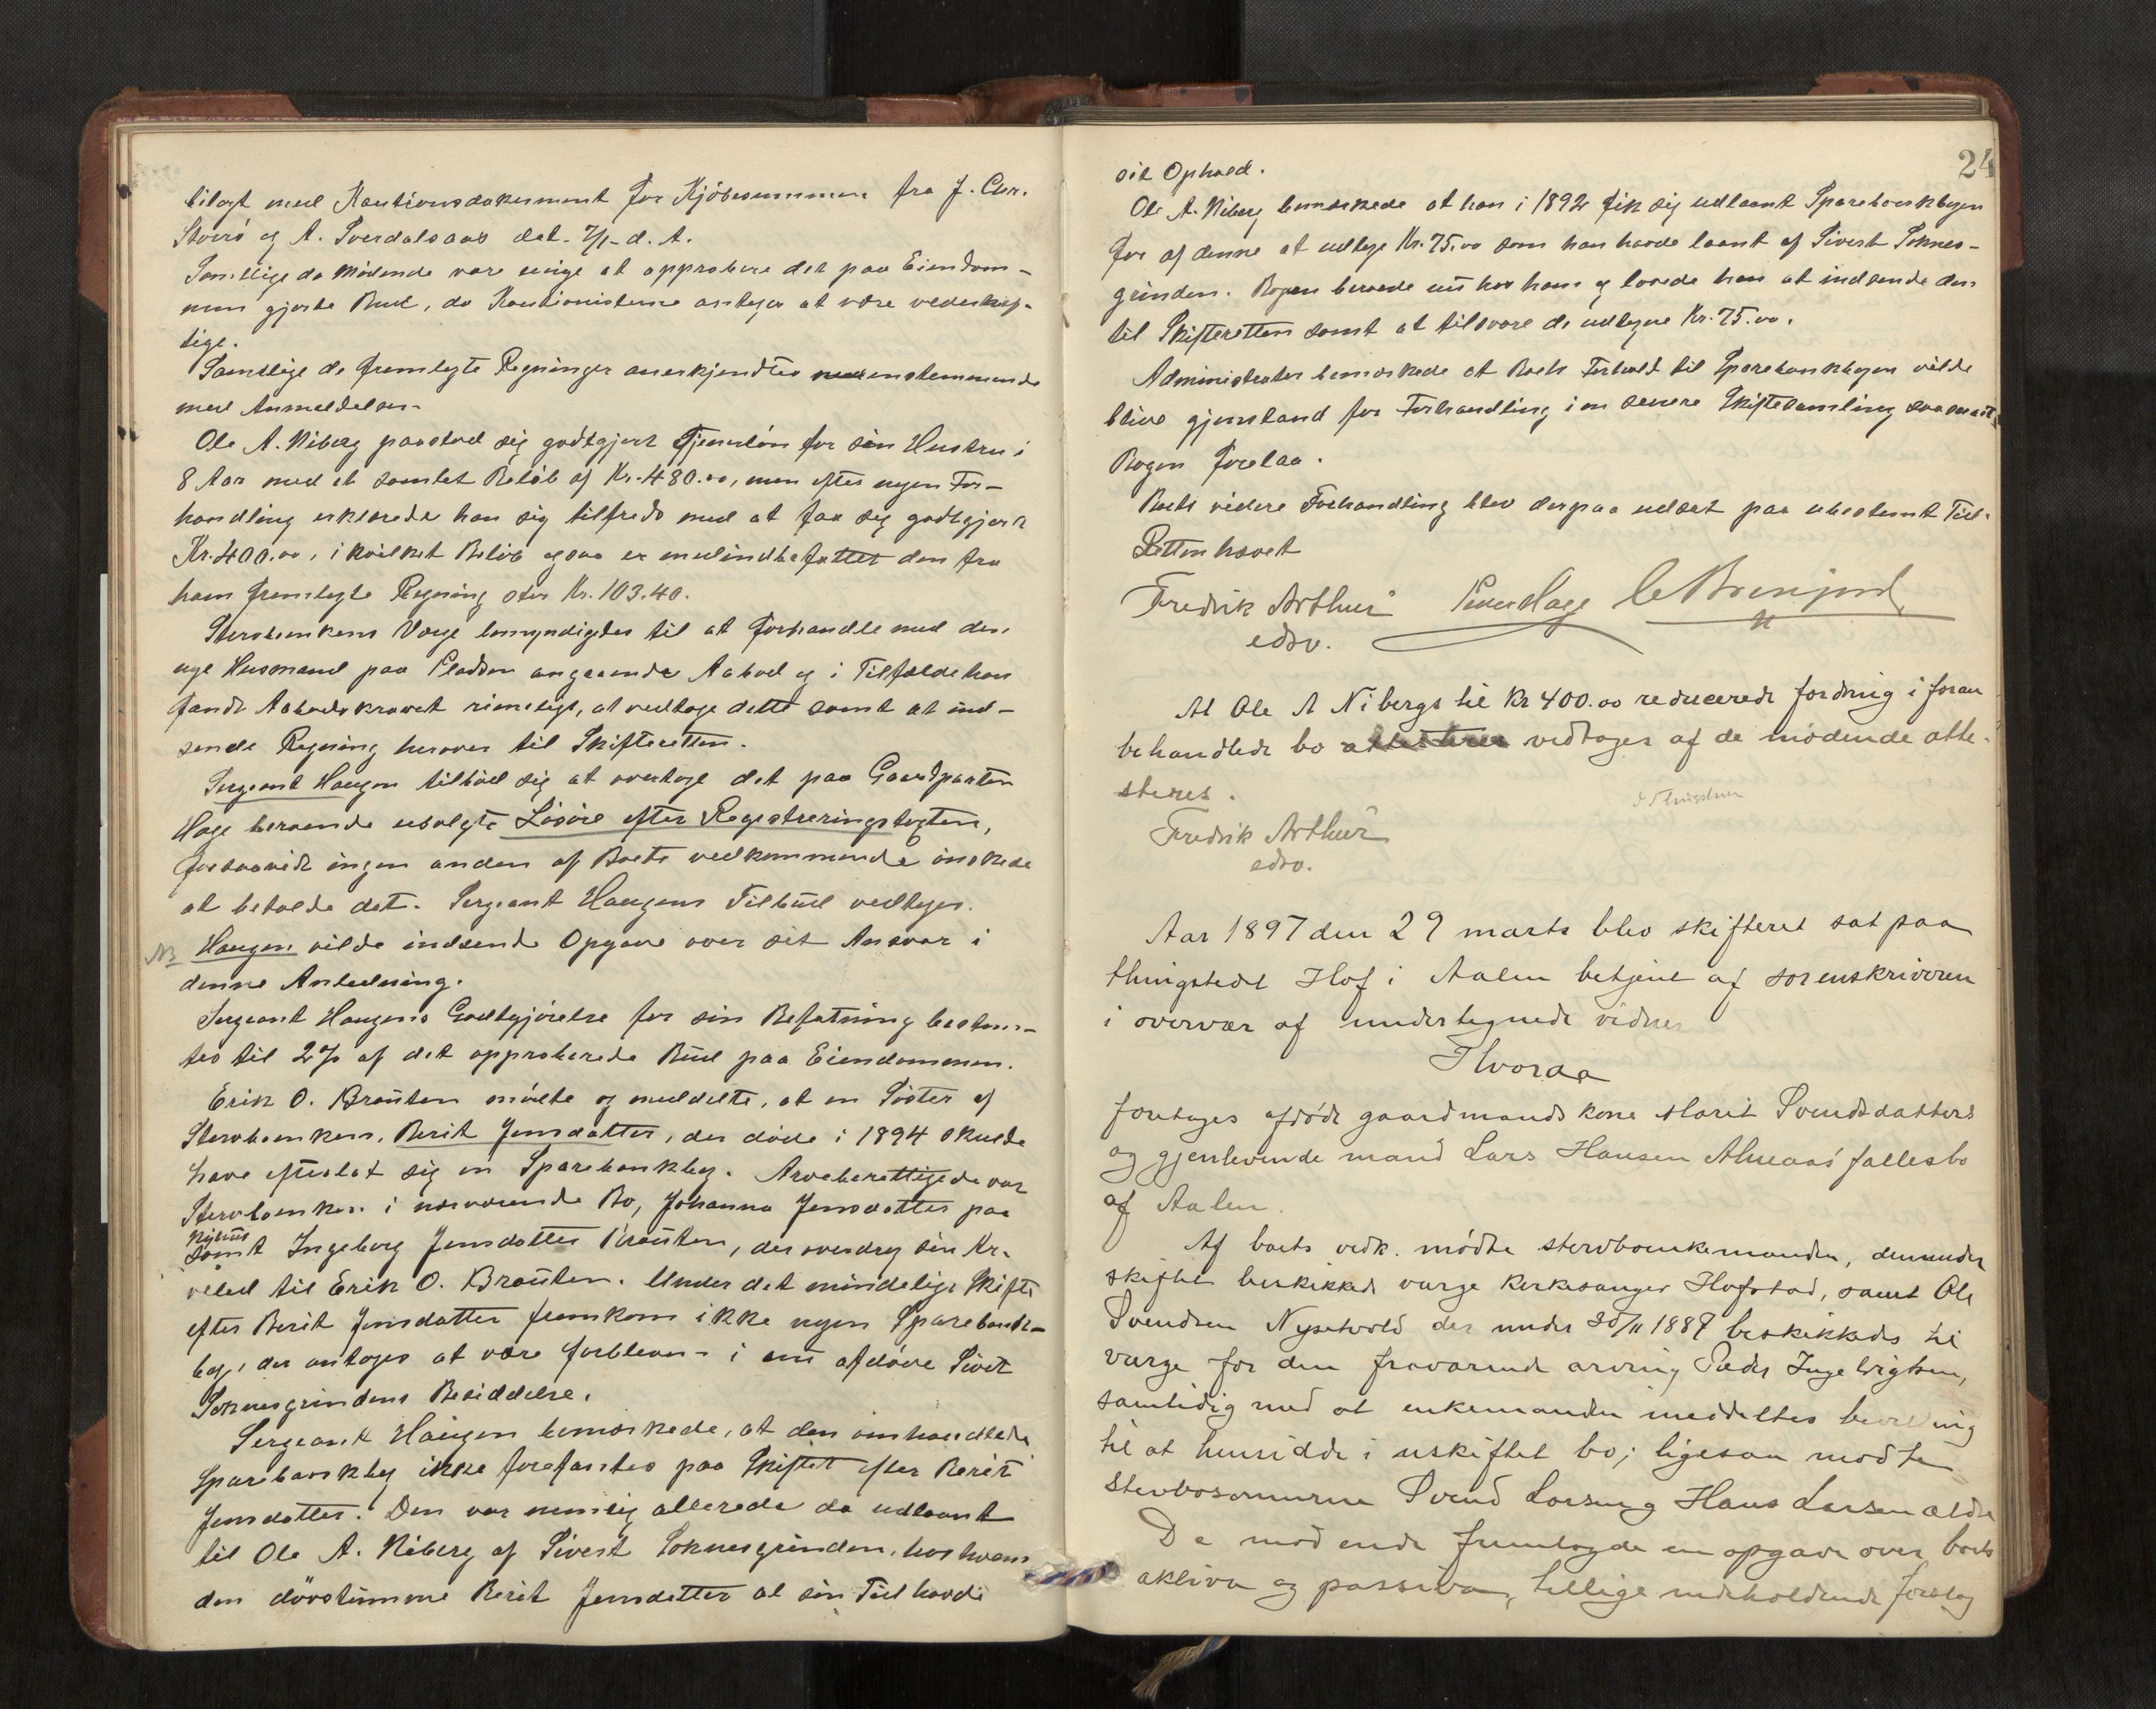 bilagt med Kautionsdokument for Kjöbesummen fra J. Chr.
Störö og A. Sverdalsaas dat. 7/1 d. A.
Samtlige de Mödende vare enige at approbere det paa Eiendom-
men gjorte Bud, da Kautionisterne antages at være vederhef-
tige.
Samtlige de fremlagte Regninger anerkjendtes enstemmende
med Anmeldelsen.
Ole A. Niberg paastod sig godtgjort Tjenerlön for sin Hustru i
8 Aar med et samlet Belöb af Kr. 480.00, men efter nogen For-
handling erklærede han sig tilfreds med at faa sig godtgjort
Kr. 400.00, i hvilket Belöb ogsaa er medindbefattet den fra
ham fremlagte Regning stor Kr. 103.40.
Stervbenkens Værge bemyndigedes til at forhandle med den
nye Husmand paa Pladsen angaaende Aabod og i Tilfælde han
fandt Aabodskravet rimeligt, at vedtage dette samt at ind-
sende Regning herover til Skifteretten.
Sergeant Haugen tilböd sig at overtage det paa Gaardparten
Hage beroende usolgte Lösöre efter Registreringstaxten,
forsaavidt ingen anden af Boets vedkommende önskede
at beholde det. Sergeant Haugens Tilbud vedtoges.
NB Haugen vilde indsende Opgave over sit Ansvar i
denne Anledning.
Sergeant Haugens Godtgjörelse for sin Befatning bestem-
tes til 2% af det approberede Bud paa Eiendommen.
Erik O. Bräuten mödte og meddelte, at en Söster af
Stervbenken, Berit Jensdatter, der döde i 1894 skulde
have efterladt sig en Sparebankbog. Arveberettigede var
Stervbenken i nærværende Bo, Johanna Jensdatter paa
Nyhus
samt Ingeborg Jensdatter Bräuten, der overdrog sin Ar-
velod til Erik O. Bräuten. Under det mindelige Skifte
efter Berit Jensdatter fremkom ikke nogen Sparebank-
bog, der antoges at være forbleven i nu afdöde Sivert
Soknesgrindens Besiddelse.
Sergeant Haugen bemærkede, at den omhandlede
Sparebankbog ikke forefantes paa Skiftet efter Berit
Jensdatter. Den var nemlig allerede da udlaant
til Ole A. Niberg af Sivert Soknesgrinden, hos hvem
den dövstumme Berit Jensdatter al sin Tid havde
24
sit Ophold.
Ole A. Niberg bemærkede at han i 1892 fik sig udlaant Sparebankbogen
for af denne at udtage Kr. 75.00 som han havde laant af Sivert Soknes-
grinden. Bogen beroede nu hos ham og lovede han at indsende den
til Skifteretten samt at tilsvare de udtagne Kr. 75.00.
Administrator bemærkede at Boets Forhold til Sparebankbogen vilde
blive gjenstand for Forhandling i en senere Skiftesamling saasnart
Bogen forelaa.
Boets videre Forhandling blev derpaa udsat paa ubestemt Tid.
Retten hævet
Fredrik Arthur
edsv.
At Ole A Nibergs til Kr 400.00 reducerede fordring i foran
behandlede bo vedtages af de mödende atte-
steres.
Fredrik Arthur
edsv.
Aar 1897 den 29 marts blev skifteret sat paa
thingstedet Hof i Aalen betjent af sorenskriveren
i overvær af undertegnede vidner
Hvoraa
foretoges afdöde gaardmandskone Marit Svendsdatters
og gjenlevende mand Lars Hansen Almaas' fællesbo
af Aalen.
Af boets vedk. mödte stervboenkemanden, den under
skiftet beskikkede værge Kirkesanger Hofstad, samt Ole
Svendsen Nysetvold der under 25/11 1887 beskikkedes til
værge for den fraværende arving Peder Ingebrigtsen,
samtidig med at enkemanden meddeltes bevilling
til at hensidde i uskiftet bo; ligesaa mödte
stervbosönnerne Svend Larsen og Hans Larsen ældre
De mödende fremlagde en opgave over boets
aktiva og passiva, tillige indeholdende forslag